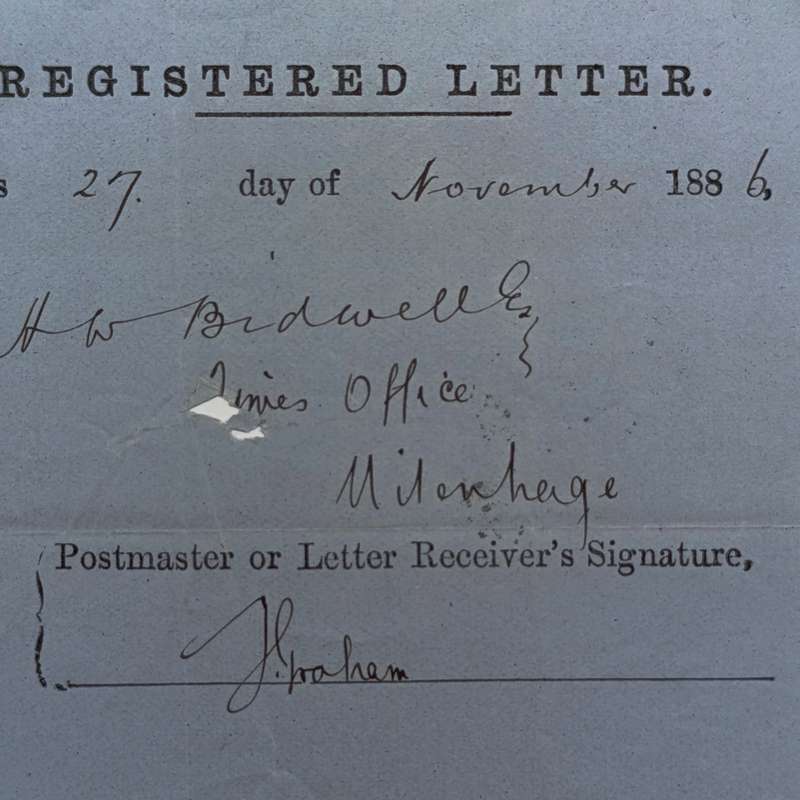 REGISTERED LETTER.
s 27. day of November 1886,
H W Bidwell Esq
Times Office
Uitenhage
Postmaster or Letter Receiver's Signature,
J. Graham